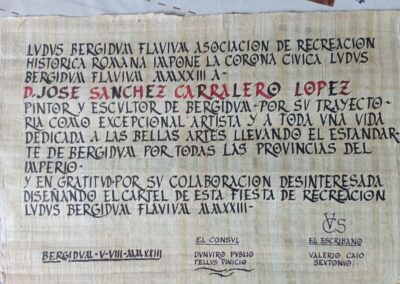 LVDVS BERGIDVM FLAVIVM ASOCIACION DE RECREACION
HISTORICA ROMANA IMPONE LA CORONA CIVICA LVDVS
BERGIDVM FLAVIVM MMXXIII A-
D. JOSE SANCHEZ CARRALERO LOPEZ
PINTOR Y ESCVLTOR DE BERGIDVM-POR SV TRAYECTO-
RIA COMO EXCEPCIONAL ARTISTA Y A TODA VNA VIDA
DEDICADA A LAS BELLAS ARTES LLEVANDO EL ESTANDAR-
TE DE BERGIDVM POR TODAS LAS PROVINCIAS DEL
IMPERIO-
Y EN GRATITVD-POR SV COLABORACION DESINTERESADA
DISEÑANDO EL CARTEL DE ESTA FIESTA DE RECREACION
LVDVS BERGIDVM FLAVIVM MMXXIII-
BERGIDVM-V-VIII-MMXXIII
EL CONSVL
DVNVIRO PVBLIO
TELLVS VINICIO
EL ESCRIBANO
VALERIO CAIO
SEVTONIO